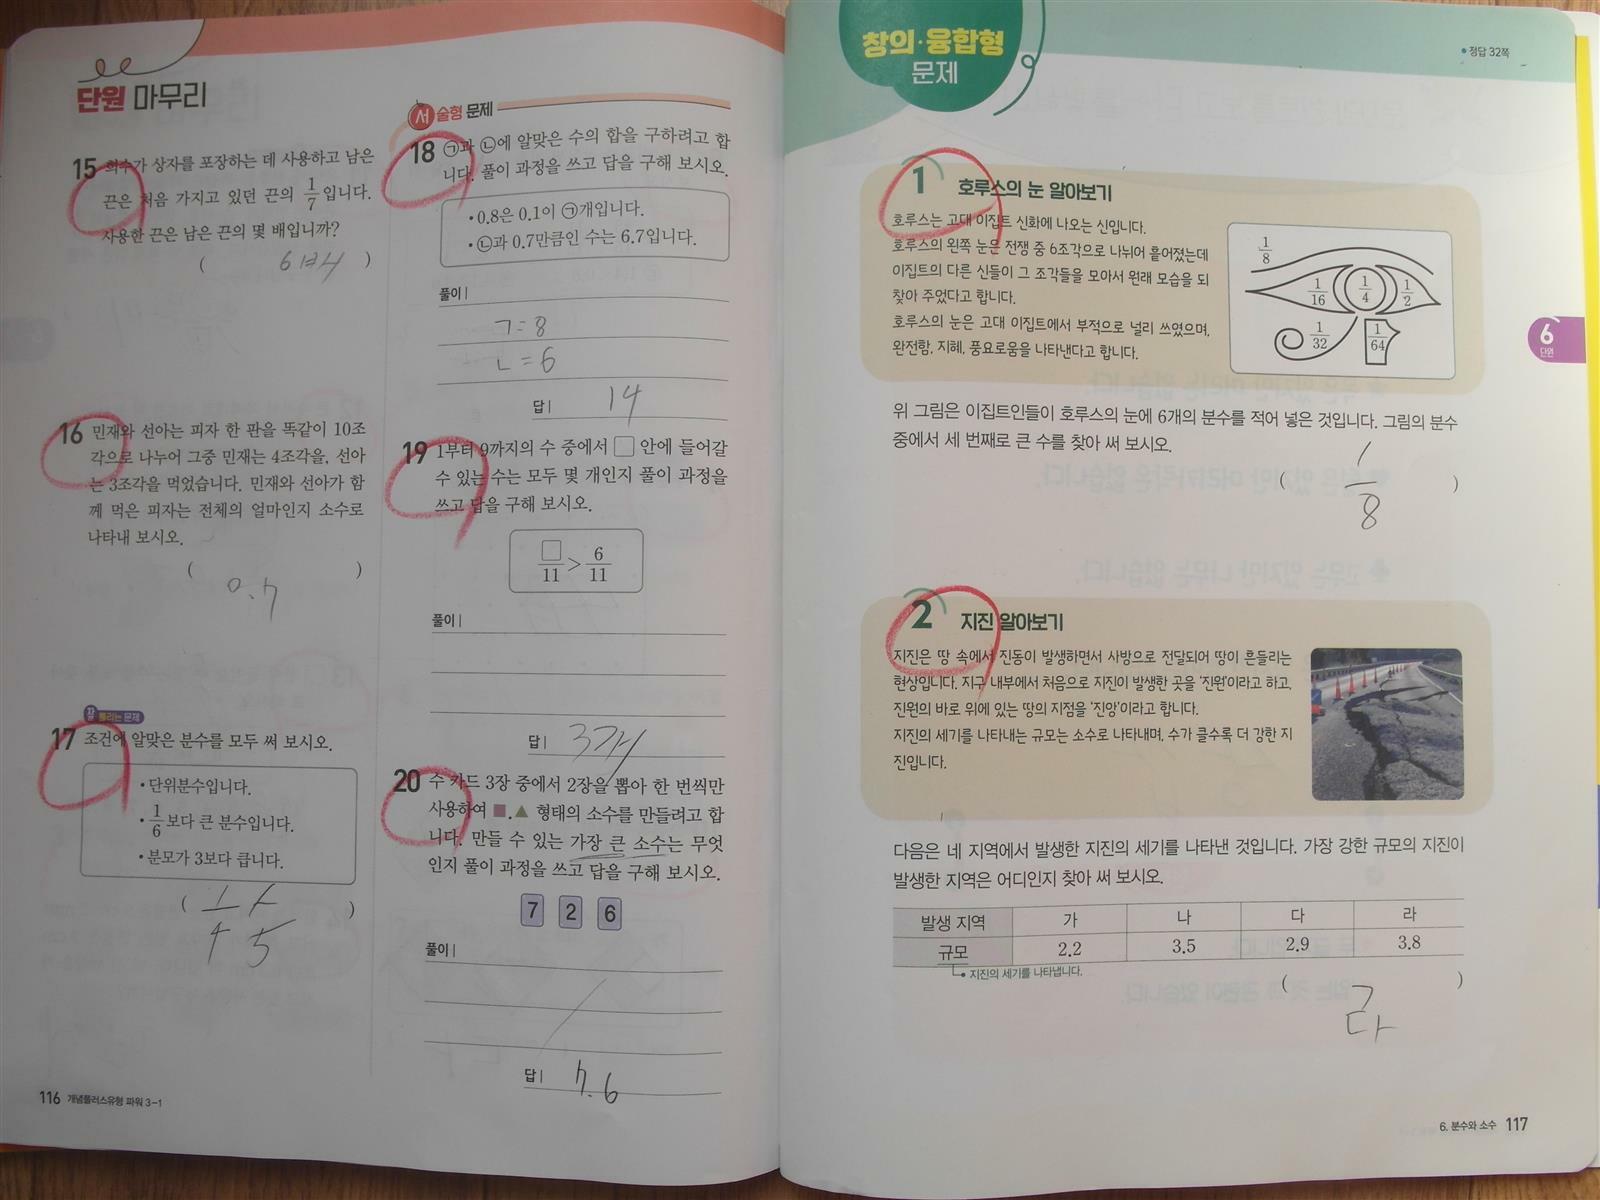 단원 마무리
15 희수가 상자를 포장하는 데 사용하고 남은
끈은 처음 가지고 있던 끈의 1/7입니다.
사용한 끈은 남은 끈의 몇 배입니까?
( 6배 )
16 민재와 선아는 피자 한 판을 똑같이 10조
각으로 나누어 그중 민재는 4조각을, 선아
는 3조각을 먹었습니다. 민재와 선아가 함
께 먹은 피자는 전체의 얼마인지 소수로
나타내 보시오.
( 0.7 )
잘 틀리는 문제
17 조건에 알맞은 분수를 모두 써 보시오.
• 단위분수입니다.
• 1/6보다 큰 분수입니다.
• 분모가 3보다 큽니다.
( 1/4 1/5 )
116 개념플러스유형 파워 3-1
서술형 문제
18 ㉠과 ㉡에 알맞은 수의 합을 구하려고 합
니다. 풀이 과정을 쓰고 답을 구해 보시오.
• 0.8은 0.1이 ㉠개입니다.
• ㉡과 0.7만큼인 수는 6.7입니다.
풀이 |
ㄱ=8
ㄴ=6
답 | 14
19 1부터 9까지의 수 중에서 □ 안에 들어갈
수 있는 수는 모두 몇 개인지 풀이 과정을
쓰고 답을 구해 보시오.
□/11 > 6/11
풀이 |
답 | 3개
20 수 카드 3장 중에서 2장을 뽑아 한 번씩만
사용하여 ■.▲ 형태의 소수를 만들려고 합
니다. 만들 수 있는 가장 큰 소수는 무엇
인지 풀이 과정을 쓰고 답을 구해 보시오.
7 2 6
풀이 |
답 | 7.6
창의·융합형
문제
• 정답 32쪽
1 호루스의 눈 알아보기
호루스는 고대 이집트 신화에 나오는 신입니다.
호루스의 왼쪽 눈은 전쟁 중 6조각으로 나뉘어 흩어졌는데
이집트의 다른 신들이 그 조각들을 모아서 원래 모습을 되
찾아 주었다고 합니다.
호루스의 눈은 고대 이집트에서 부적으로 널리 쓰였으며,
완전함, 지혜, 풍요로움을 나타낸다고 합니다.
1/8
1/16 1/4 1/2
1/32 1/64
6
단원
위 그림은 이집트인들이 호루스의 눈에 6개의 분수를 적어 넣은 것입니다. 그림의 분수
중에서 세 번째로 큰 수를 찾아 써 보시오.
( 1/8 )
2 지진 알아보기
지진은 땅 속에서 진동이 발생하면서 사방으로 전달되어 땅이 흔들리는
현상입니다. 지구 내부에서 처음으로 지진이 발생한 곳을 '진원'이라고 하고,
진원의 바로 위에 있는 땅의 지점을 '진앙'이라고 합니다.
지진의 세기를 나타내는 규모는 소수로 나타내며, 수가 클수록 더 강한 지
진입니다.
다음은 네 지역에서 발생한 지진의 세기를 나타낸 것입니다. 가장 강한 규모의 지진이
발생한 지역은 어디인지 찾아 써 보시오.
발생 지역 가 나 다 라
규모 2.2 3.5 2.9 3.8
• 지진의 세기를 나타냅니다.
( 라 )
6. 분수와 소수 117